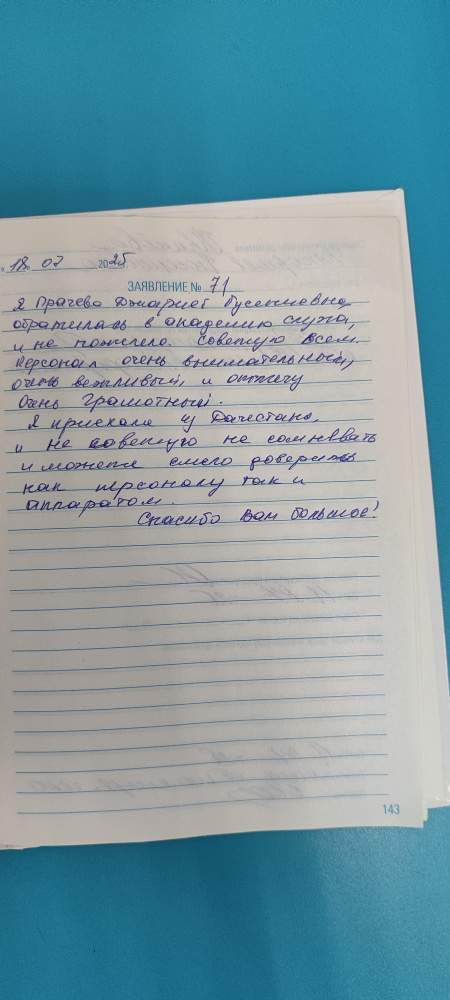 18 07 2025
ЗАЯВЛЕНИЕ № 71
Я Прачева Джариет Гусеновна
обратилась в академию слуха,
и не пожелела. Советую всем.
Персонал очень внимательный,
очень вежливый, и
очень грамотный.
Я приехала из Дагестана,
и не советую не сомневать
и можете смело доверить
как персоналу так и
аппаратом.
Спасибо Вам большое!
143